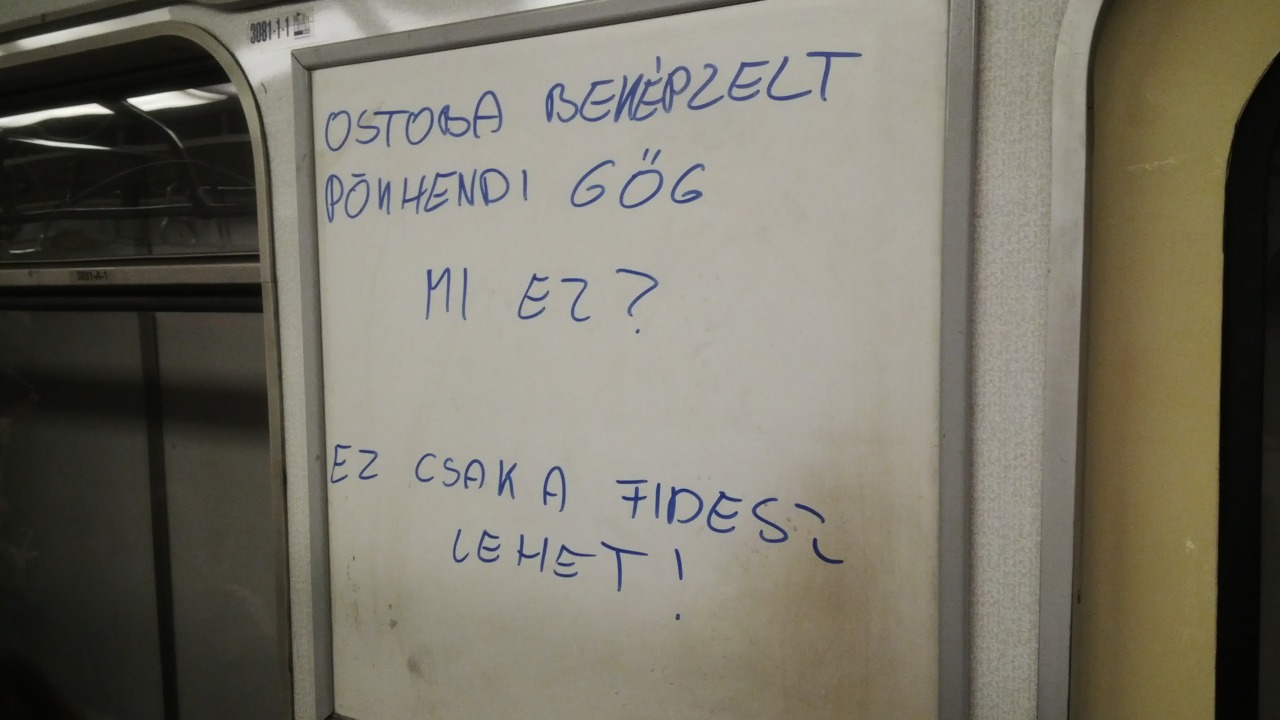 3081-1-1
OSTOBA BEKÉPZELT
PÖKHENDI GŐG
MI EZ?
3081-A-1
EZ CSAK A FIDESZ
LEHET!